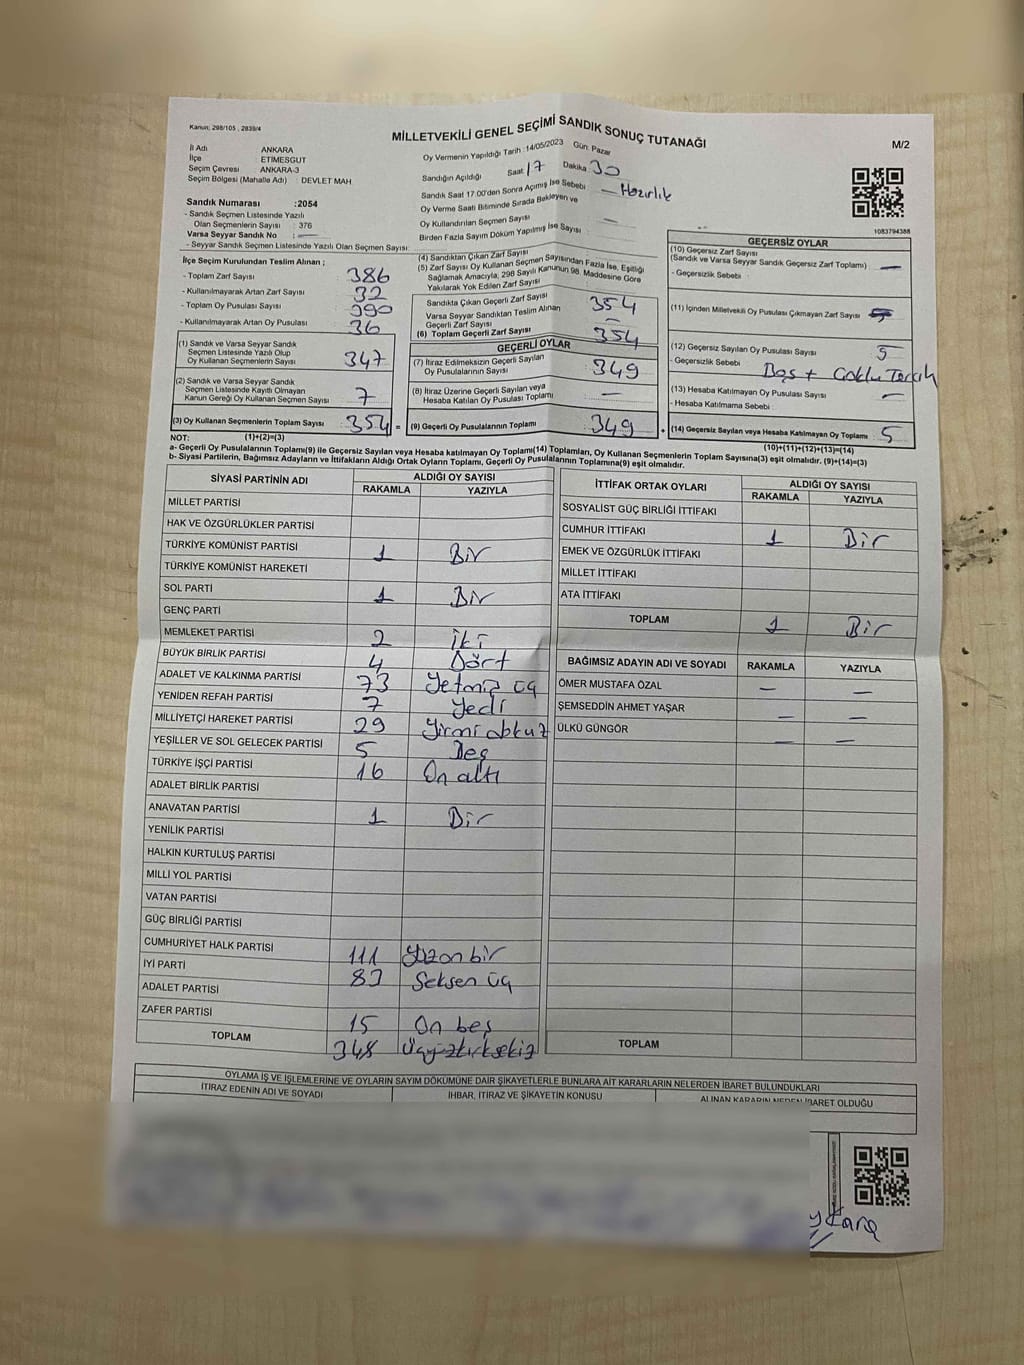 Kanun; 298/105 , 2839/4
MİLLETVEKİLİ GENEL SEÇİMİ SANDIK SONUÇ TUTANAĞI
M/2
İl Adı ANKARA
İlçe ETİMESGUT
Seçim Çevresi : ANKARA-3
Seçim Bölgesi (Mahalle Adı) : DEVLET MAH
Sandık Numarası :2054
- Sandık Seçmen Listesinde Yazılı
Olan Seçmenlerin Sayısı : 376
Varsa Seyyar Sandık No :
- Seyyar Sandık Seçmen Listesinde Yazılı Olan Seçmen Sayısı:
Oy Vermenin Yapıldığı Tarih :14/05/2023 Gün: Pazar
Sandığın Açıldığı Saat 17 Dakika 30
Sandık Saat 17.00'den Sonra Açımış İse Sebebi — Hazırlık
Oy Verme Saati Bitiminde Sırada Bekleyen ve
Oy Kullandırılan Seçmen Sayısı —
Birden Fazla Sayım Döküm Yapılmış İse Sayısı :
1083794388
İlçe Seçim Kurulundan Teslim Alınan ;
- Toplam Zarf Sayısı 386
- Kullanılmayarak Artan Zarf Sayısı 32
- Toplam Oy Pusulası Sayısı 390
- Kullanılmayarak Artan Oy Pusulası 36
(1) Sandık ve Varsa Seyyar Sandık
Seçmen Listesinde Yazılı Olup
Oy Kullanan Seçmenlerin Sayısı 347
(2) Sandık ve Varsa Seyyar Sandık
Seçmen Listesinde Kayıtlı Olmayan
Kanun Gereği Oy Kullanan Seçmen Sayısı 7
(3) Oy Kullanan Seçmenlerin Toplam Sayısı 354 =
(4) Sandıktan Çıkan Zarf Sayısı
(5) Zarf Sayısı Oy Kullanan Seçmen Sayısından Fazla İse, Eşitliği
Sağlamak Amacıyla; 298 Sayılı Kanunun 98. Maddesine Göre
Yakılarak Yok Edilen Zarf Sayısı :
Sandıkta Çıkan Geçerli Zarf Sayısı 354
Varsa Seyyar Sandıktan Teslim Alınan
Geçerli Zarf Sayısı —
(6) Toplam Geçerli Zarf Sayısı 354
GEÇERLİ OYLAR
(7) İtiraz Edilmeksizin Geçerli Sayılan
Oy Pusulalarının Sayısı 349
(8) İtiraz Üzerine Geçerli Sayılan veya
Hesaba Katılan Oy Pusulası Toplamı —
(9) Geçerli Oy Pusulalarının Toplamı 349 +
GEÇERSİZ OYLAR
(10) Geçersiz Zarf Sayısı
(Sandık ve Varsa Seyyar Sandık Geçersiz Zarf Toplamı) —
- Geçersizlik Sebebi :
(11) İçinden Milletvekili Oy Pusulası Çıkmayan Zarf Sayısı
(12) Geçersiz Sayılan Oy Pusulası Sayısı 5
- Geçersizlik Sebebi Boş + Çoklu Tercih
(13) Hesaba Katılmayan Oy Pusulası Sayısı —
- Hesaba Katılmama Sebebi :
(14) Geçersiz Sayılan veya Hesaba Katılmayan Oy Toplamı 5
NOT: (1)+(2)=(3) (10)+(11)+(12)+(13)=(14)
a- Geçerli Oy Pusulalarının Toplamı(9) ile Geçersiz Sayılan veya Hesaba katılmayan Oy Toplamı(14) Toplamları, Oy Kullanan Seçmenlerin Toplam Sayısına(3) eşit olmalıdır. (9)+(14)=(3)
b- Siyasi Partilerin, Bağımsız Adayların ve İttifakların Aldığı Ortak Oyların Toplamı, Geçerli Oy Pusulalarının Toplamına(9) eşit olmalıdır.
SİYASİ PARTİNİN ADI ALDIĞI OY SAYISI
RAKAMLA YAZIYLA
MİLLET PARTİSİ
HAK VE ÖZGÜRLÜKLER PARTİSİ
TÜRKİYE KOMÜNİST PARTİSİ 1 Bir
TÜRKİYE KOMÜNİST HAREKETİ
SOL PARTİ 1 Bir
GENÇ PARTİ
MEMLEKET PARTİSİ 2 İki
BÜYÜK BİRLİK PARTİSİ 4 Dört
ADALET VE KALKINMA PARTİSİ 73 Yetmiş üç
YENİDEN REFAH PARTİSİ 7 Yedi
MİLLİYETÇİ HAREKET PARTİSİ 29 Yirmi dokuz
YEŞİLLER VE SOL GELECEK PARTİSİ 5 Beş
TÜRKİYE İŞÇİ PARTİSİ 16 On altı
ADALET BİRLİK PARTİSİ
ANAVATAN PARTİSİ 1 Bir
YENİLİK PARTİSİ
HALKIN KURTULUŞ PARTİSİ
MİLLİ YOL PARTİSİ
VATAN PARTİSİ
GÜÇ BİRLİĞİ PARTİSİ
CUMHURİYET HALK PARTİSİ 111 Yüzon bir
İYİ PARTİ 83 Seksen üç
ADALET PARTİSİ
ZAFER PARTİSİ 15 On beş
TOPLAM 348 Üçyüzkırksekiz
İTTİFAK ORTAK OYLARI ALDIĞI OY SAYISI
RAKAMLA YAZIYLA
SOSYALİST GÜÇ BİRLİĞİ İTTİFAKI
CUMHUR İTTİFAKI 1 Bir
EMEK VE ÖZGÜRLÜK İTTİFAKI
MİLLET İTTİFAKI
ATA İTTİFAKI
TOPLAM 1 Bir
BAĞIMSIZ ADAYIN ADI VE SOYADI RAKAMLA YAZIYLA
ÖMER MUSTAFA ÖZAL — —
ŞEMSEDDİN AHMET YAŞAR — —
ÜLKÜ GÜNGÖR — —
TOPLAM
OYLAMA İŞ VE İŞLEMLERİNE VE OYLARIN SAYIM DÖKÜMÜNE DAİR ŞİKAYETLERLE BUNLARA AİT KARARLARIN NELERDEN İBARET BULUNDUKLARI
İTİRAZ EDENİN ADI VE SOYADI İHBAR, İTİRAZ VE ŞİKAYETİN KONUSU ALINAN KARARIN NEDEN İBARET OLDUĞU